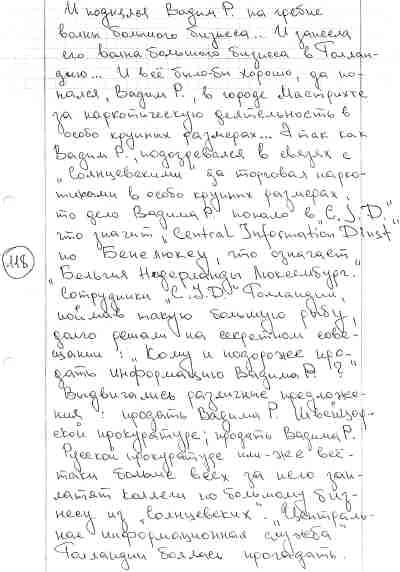 И поднялся Вадим Р. на гребне
волны большого бизнеса.. И занесла
его волна большого бизнеса в Голлан-
дию... И всё было-бы хорошо, да по-
пался, Вадим Р., в городе Мастрихте
за наркотическую деятельность в
особо крупных размерах... А так как
Вадим Р., подозревался в связях с
"Солнцевскими" за торговая нарко-
тиками в особо крупных размерах,
то дело Вадима Р. попало в "C.I.D."
что значит "Central Information Dinst"
по Бенелюксу, что означает
118.
"Бельгия Нидерланды Люксембург.
Сотрудники "C.I.D." Голландии,
поймав такую большую рыбу,
долго решали на секретном сове-
щании: "Кому и подороже про-
дать информацию Вадима Р. ?"
Выдвигались различные предложе-
ния: продать Вадима Р. Швейцар-
ской прокуратуре; продать Вадима Р.
Русской прокуратуре или-же всё-
таки больше всех за него зап-
латят коллеги по большому биз-
несу из "солнцевских". "Централь-
ная информационная служба"
Голландии боялась прогадать.